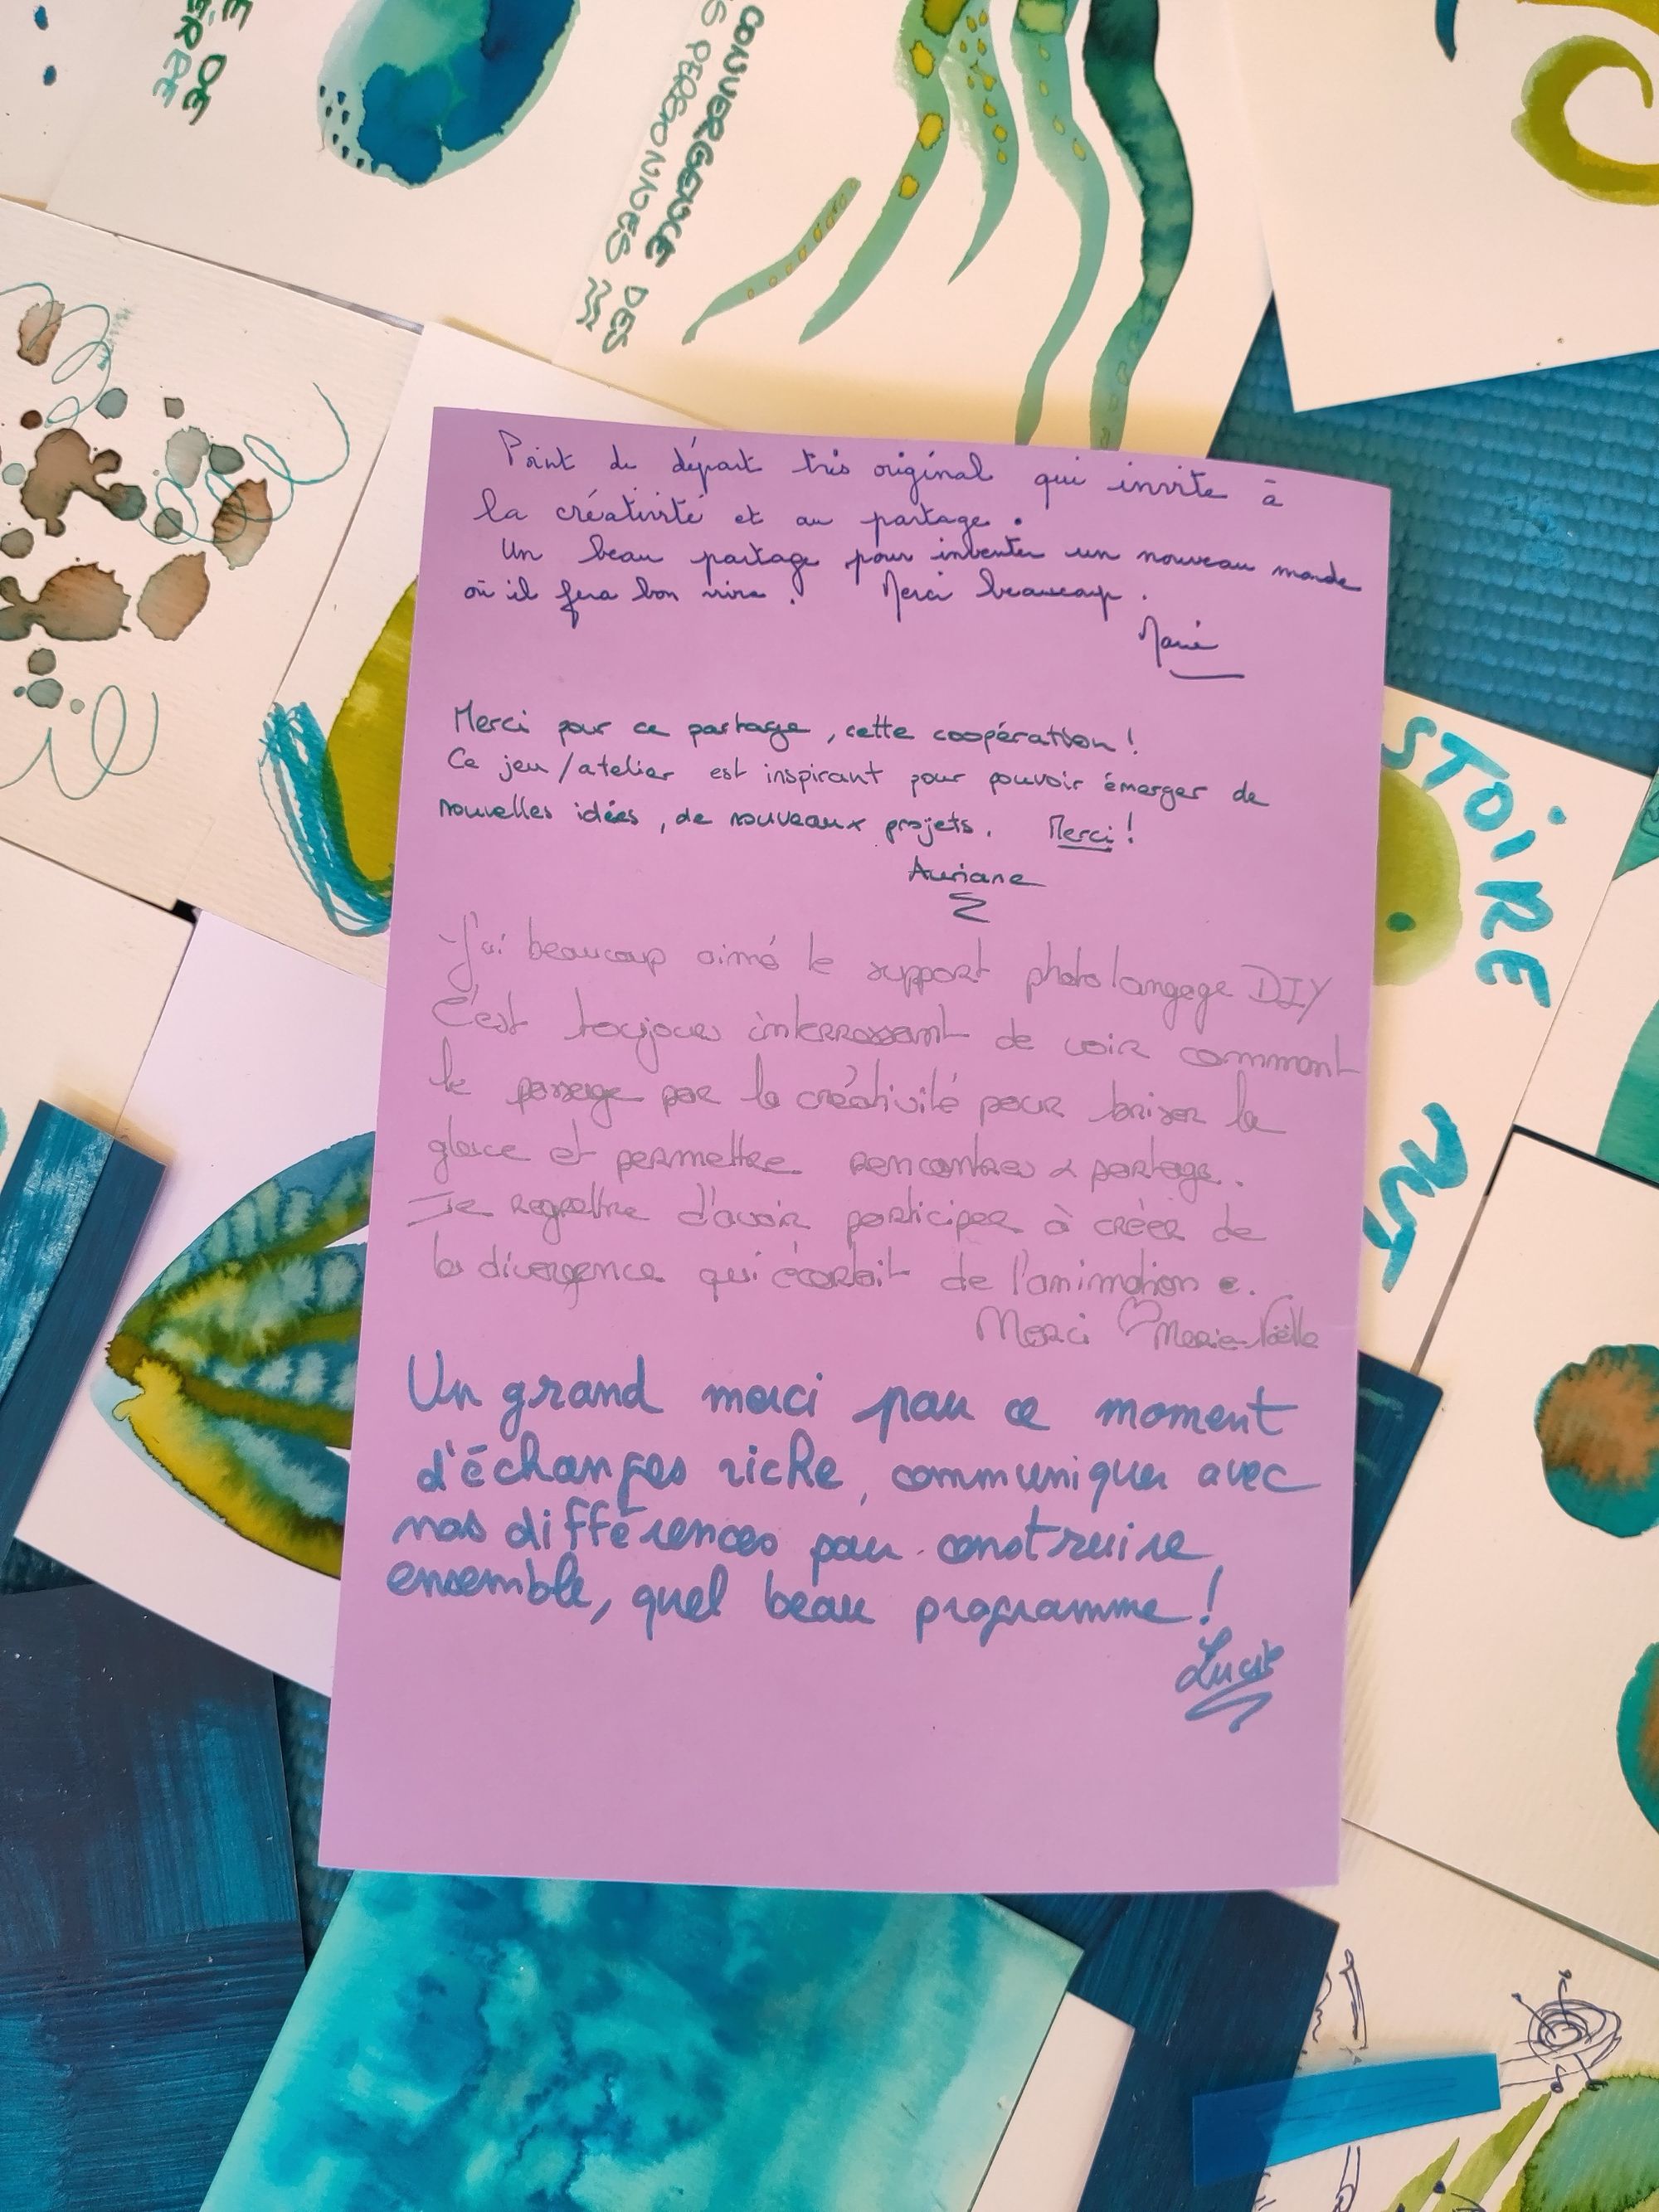 E DE
ÉRÉE
CONVERGENCE DES
S PERSONNES
Point de départ très original qui invite à
la créativité et au partage.
Un beau partage pour inventer un nouveau monde
où il fera bon vivre. Merci beaucoup.
Marie
Merci pour ce partage, cette coopération !
Ce jeu/atelier est inspirant pour pouvoir émerger de
nouvelles idées, de nouveaux projets. Merci !
Auriane
J'ai beaucoup aimé le support photolangage DIY
C'est toujours interressant de voir comment
le passage par la créativité pour briser la
glace et permettre rencontres & partage.
Je regrettre d'avoir participer à créer de
la divergence qui écartait de l'animation
Merci ♡ Marie-Noëlle
Un grand merci pour ce moment
d'échanges riche, communiquer avec
nos différences pour construire
ensemble, quel beau programme !
Lucie
STOIRE